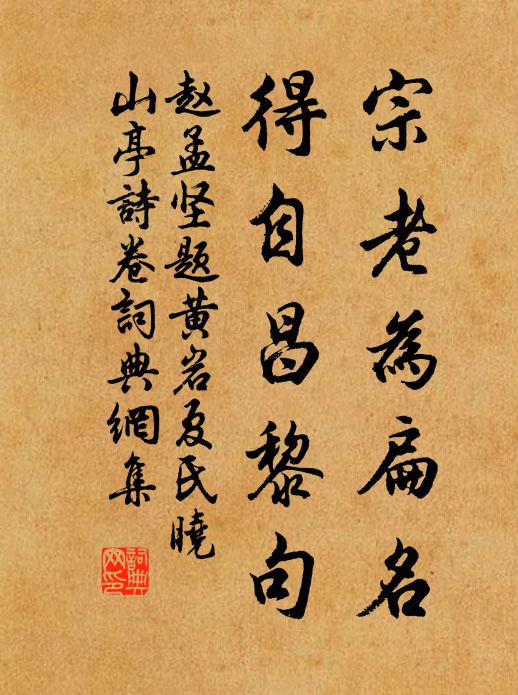 宗老為扁名
得自昌黎句
赵孟坚题黄岩夏氏曉
山亭詩卷詞典網集
詞典网印